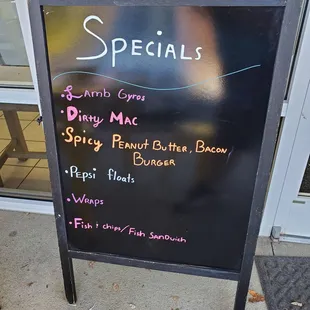 Specials
• Lamb Gyros
• Dirty Mac
• Spicy Peanut Butter, Bacon
Burger
• Pepsi floats
• Wraps
• Fish & chips/Fish Sandwich